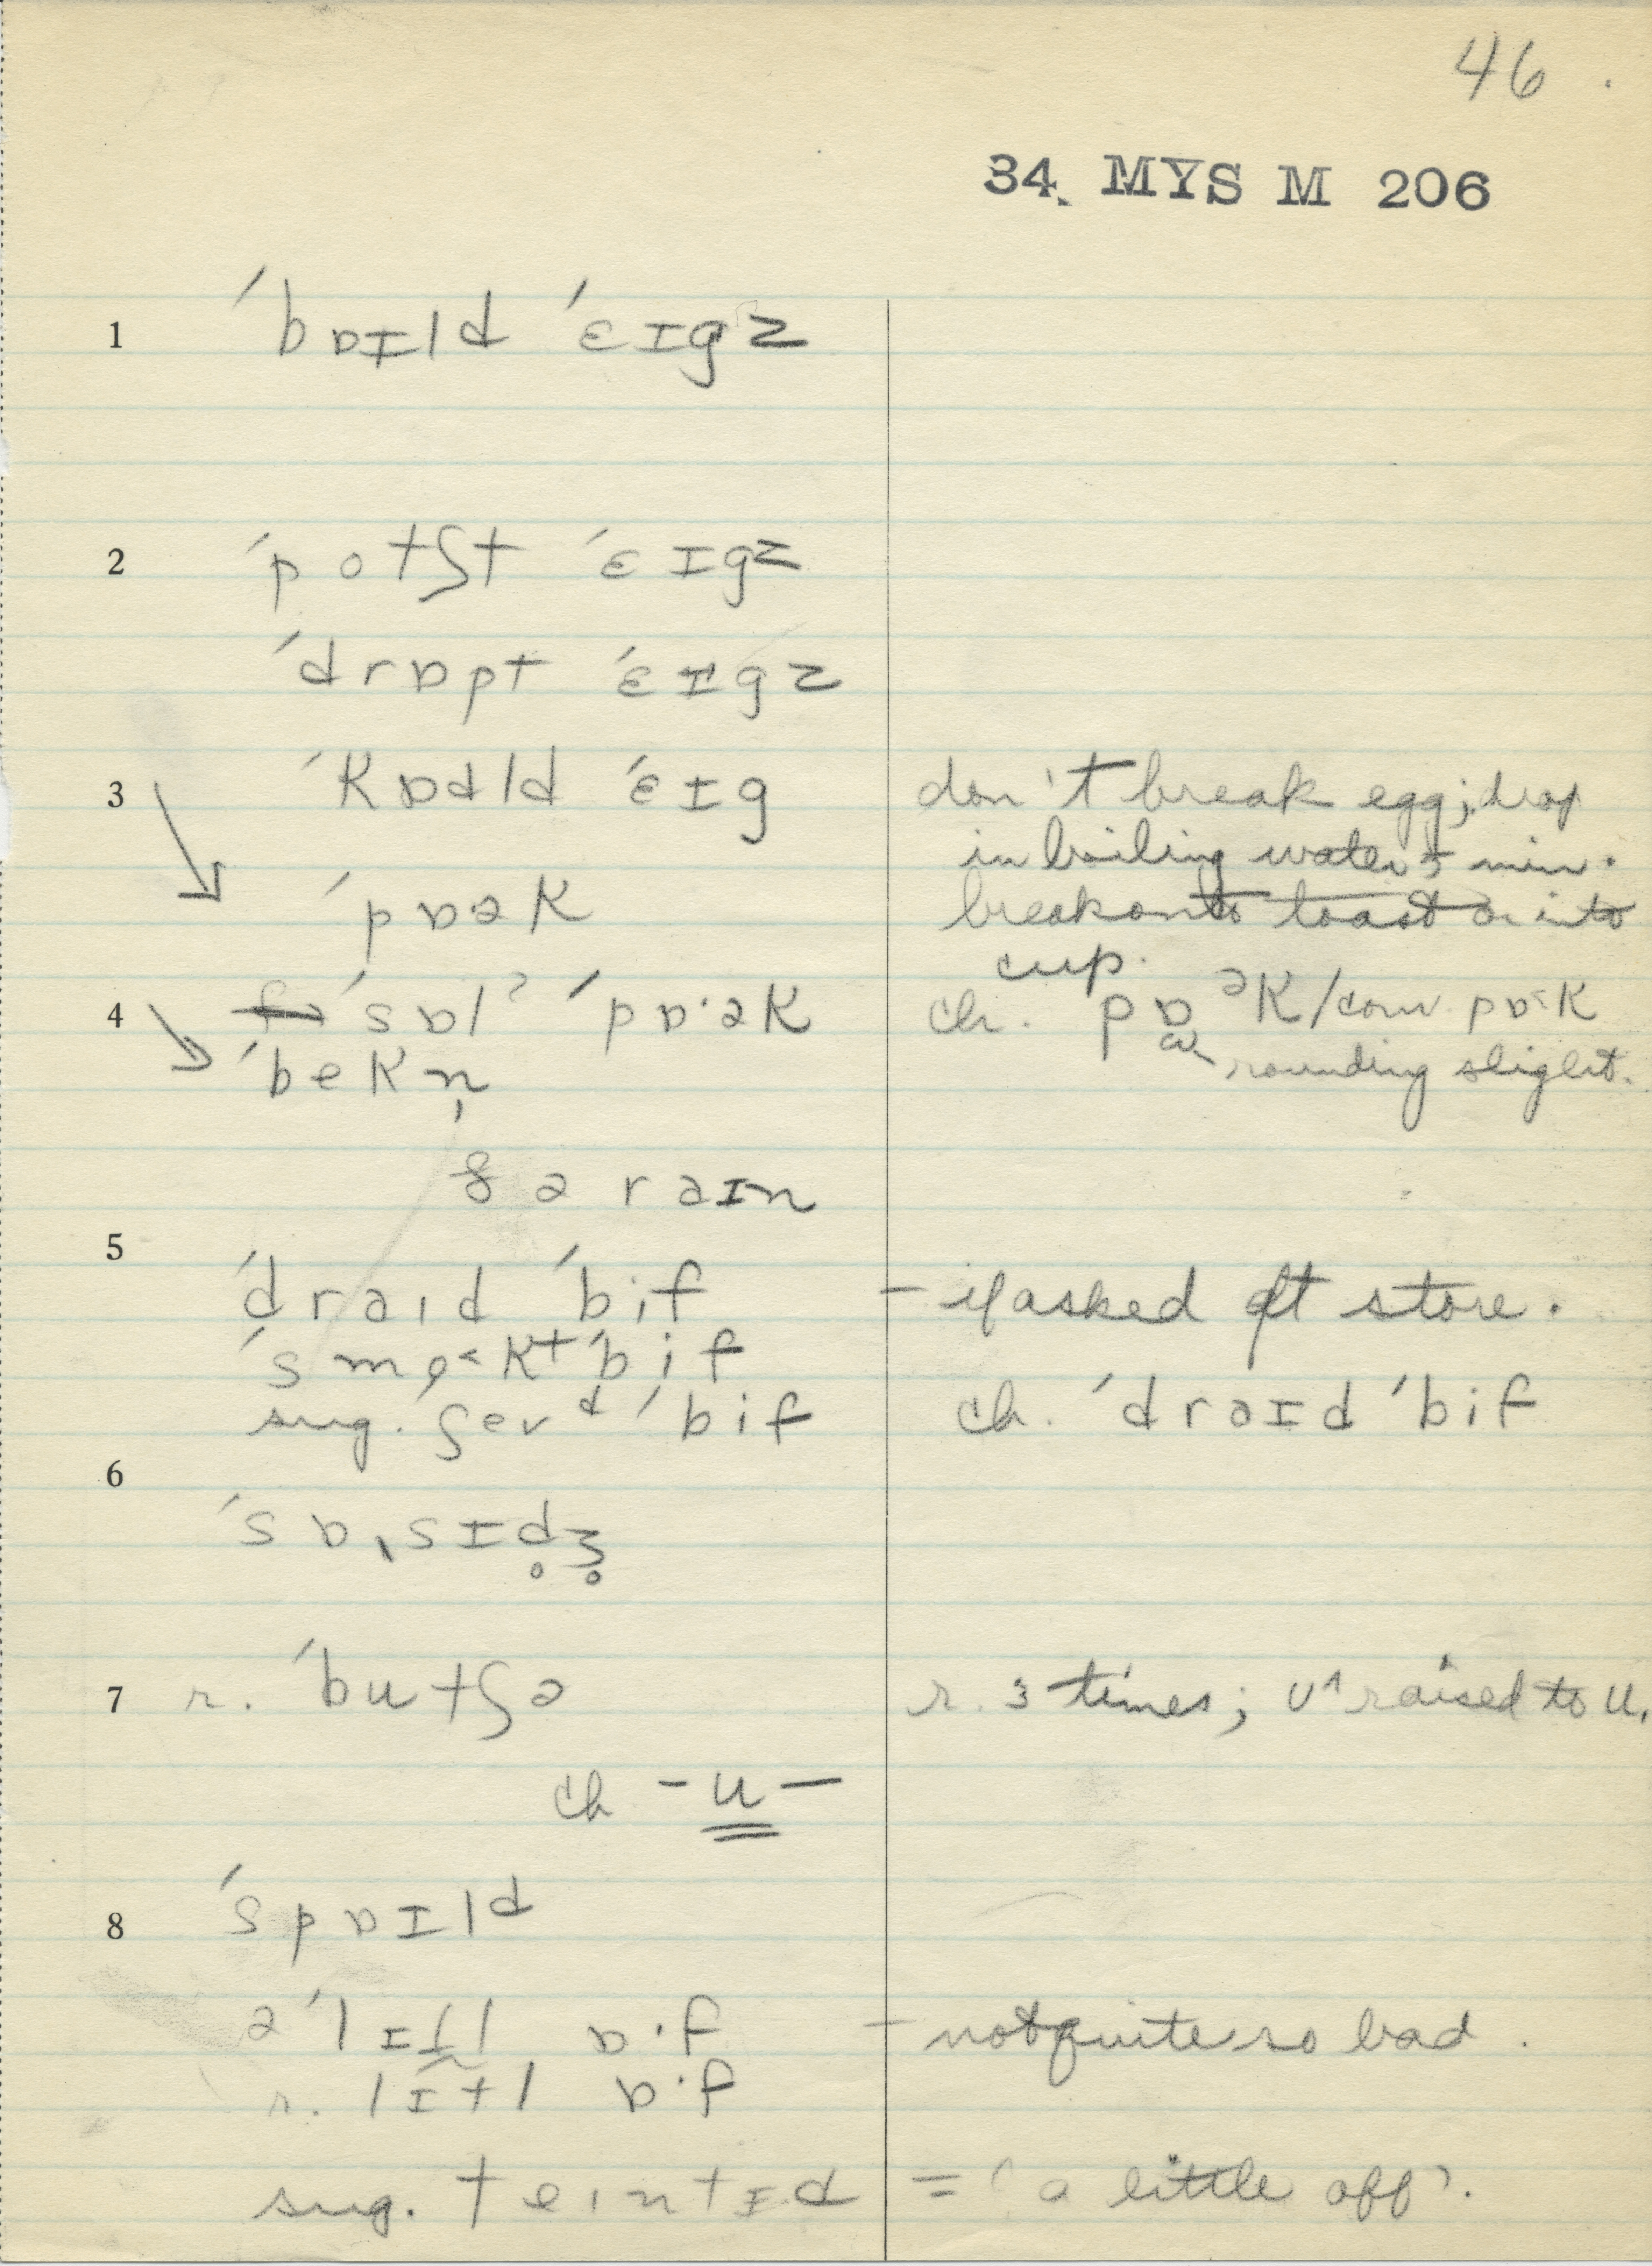 46.
34. MYS M 206
1 ˈbɒɪld ˈɛɪgz
2 ˈpotʃt ˈɛɪgz
ˈdrɒpt ˈɛɪgz
3 ˈkɒdld ˈɛɪg don't break egg; drop
in boiling water 5 min.
ˈpɒək break onto toast or into
cup.
4 ˈsɒlˀ ˈpɒ·ək ch. pɒᵊk / conv. pɒ˂k
ˈbekn̩ rounding slight.
ə raɪn
5
ˈdraɪd ˈbif – if asked at store.
ˈsmo˂kt ˈbif
sug. ʃevᵈ ˈbif ch. ˈdraɪd ˈbif
6
ˈsɒˌsɪd̥ʒ̥
7 r. ˈbutʃə r. 3 times; ʊ^ raised to u.
ch -u-
8 ˈspɒɪld
əˈlɪt̬l ɒ·f – not quite so bad.
r. lɪtl ɒ·f
sug. teɪntɪd = 'a little off'.